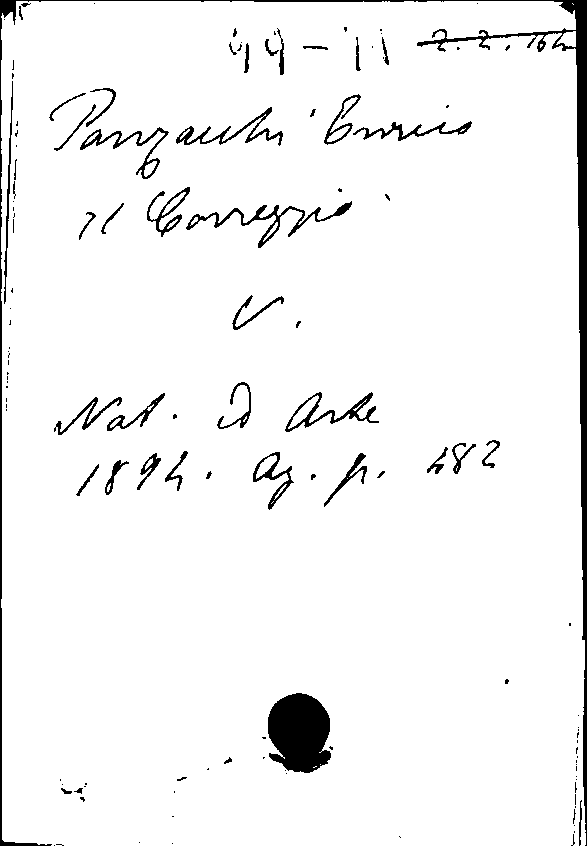 99-11 2.2.164
Panzacchi Enrico
Il Correggio.
V.
Nat. ed Arte
1894. Ag. p. 482